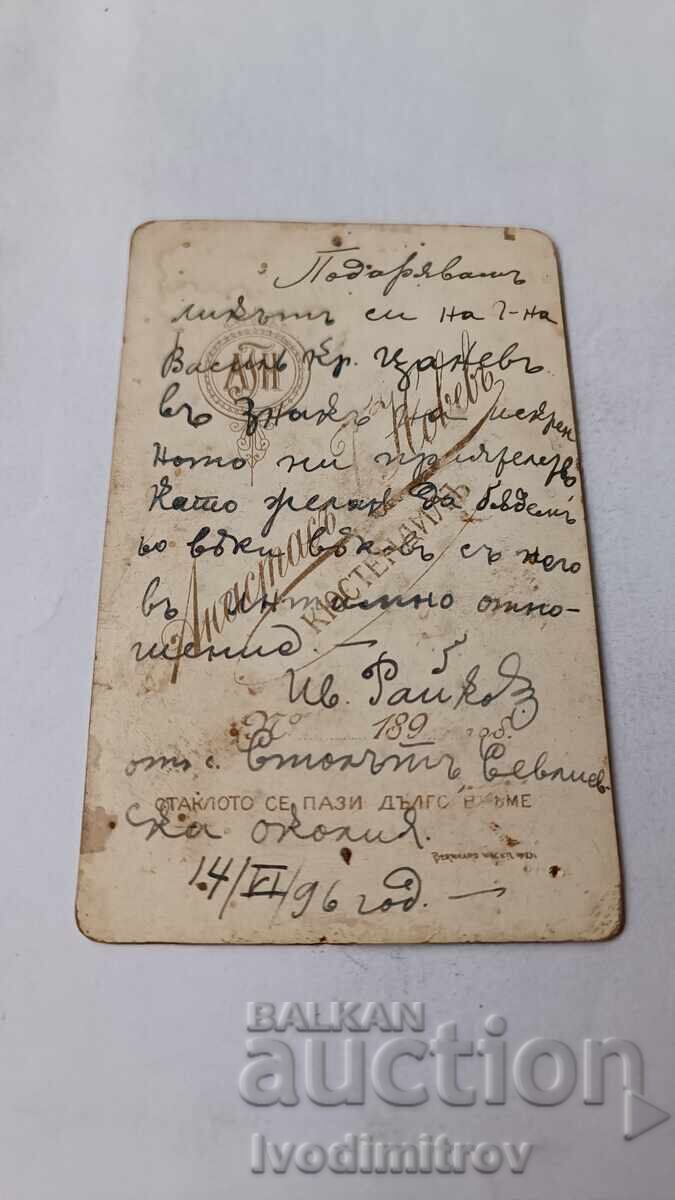 Подарявамъ
ликътъ си на Г-на
Василь Кр. Цаневъ
въ знакъ на искрен
ното ни приятелство
като желая да бѫдемъ
во вѣки вѣковъ съ него
въ интимно отно-
шение. —
Ив. Райковъ
отъ с. Стокътъ, Севлиев-
ска околия.
14/VI/96 год. —
АБН
Анастасъ Б. Ночевъ
КЮСТЕНДИЛЪ
No 189 год.
СТАКЛОТО СЕ ПАЗИ ДЪЛГО ВРѢМЕ
BALKAN
auction
Ivodimitrov